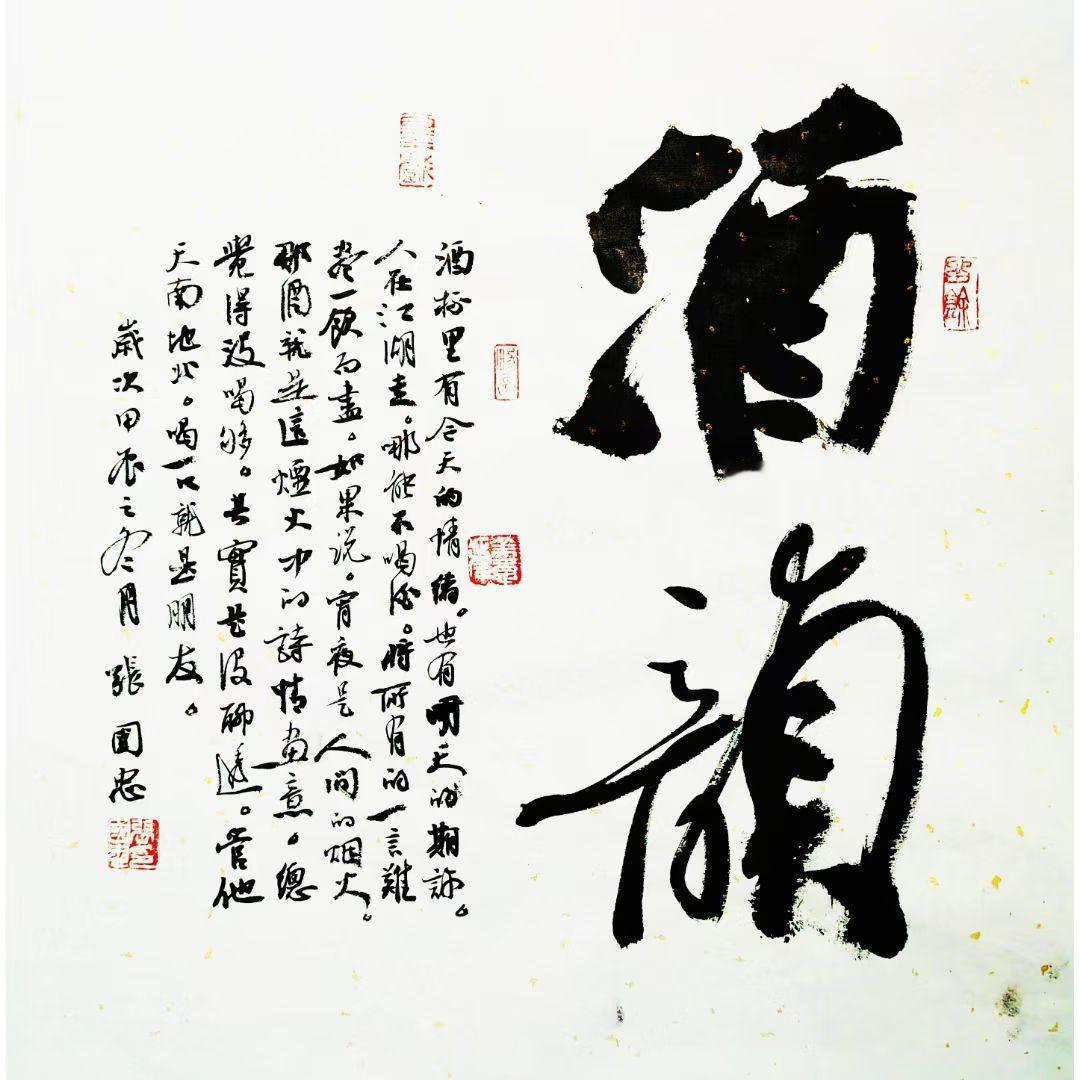 酒韻
酒杯里有今天的情绪。也有明天的期許。
人在江湖走。哪能不喝酒。將所有的一言難
盡一飲而盡。如果说。宵夜是人间的烟火。
那酒就是這煙火中的詩情畫意。總
覺得沒喝够。其實是沒聊透。管他
天南地北。喝一口就是朋友。
歲次甲辰之冬月 張國忠